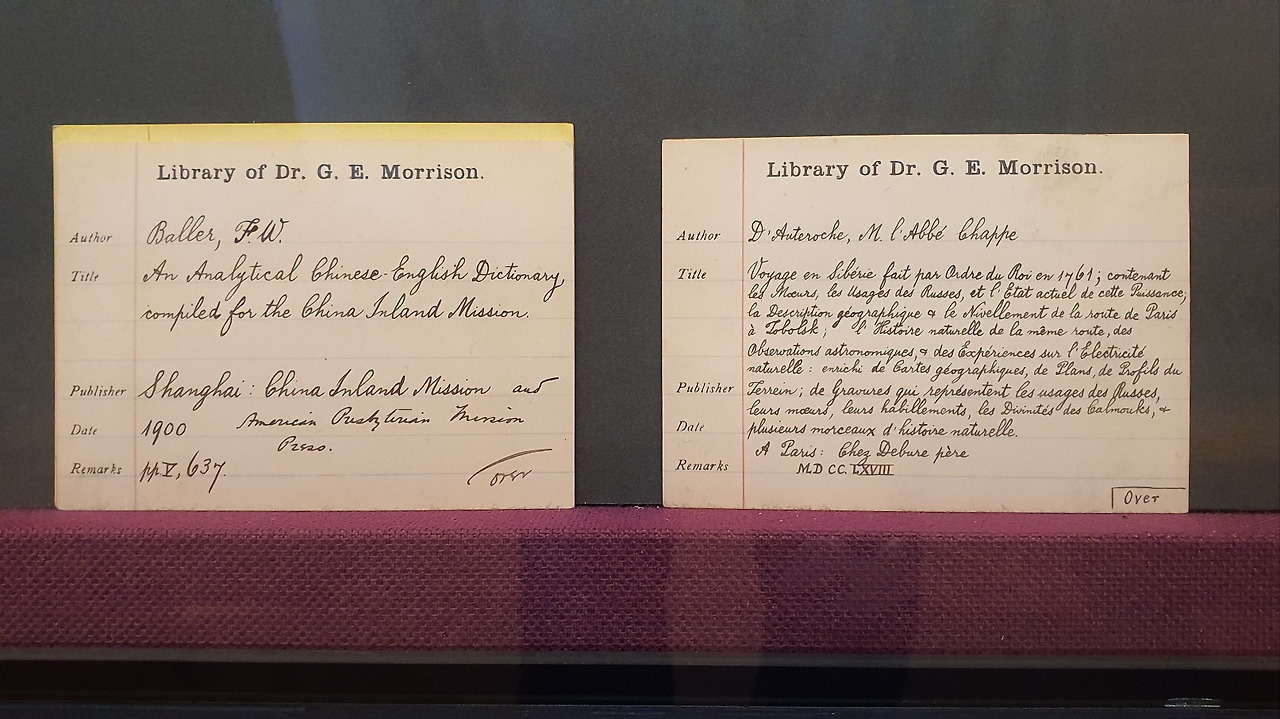 Library of Dr. G. E. Morrison.
Author Baller, F.W.
Title An Analytical Chinese-English Dictionary,
compiled for the China Inland Mission.
Publisher Shanghai: China Inland Mission and
American Presbyterian Mission
Date 1900
Press.
Remarks pp V, 637.
over
Library of Dr. G. E. Morrison.
Author D'Auteroche, M. l'Abbé Chappe
Title Voyage en Sibérie fait par Ordre du Roi en 1761; contenant
les Mœurs, les Usages des Russes, et l'Etat actuel de cette Puissance;
la Description géographique & le Nivellement de la route de Paris
à Tobolsk; l'Histoire naturelle de la même route, des
Observations astronomiques, & des Expériences sur l'Electricité
naturelle: enrichi de Cartes géographiques, de Plans, de Profils du
Publisher Terrein; de Gravures qui représentent les usages des Russes,
leurs mœurs, leurs habillements, les Divinités des Calmouks, &
Date plusieurs morceaux d'histoire naturelle.
A Paris: Chez Debure père
Remarks M.D CC. LXVIII
Over